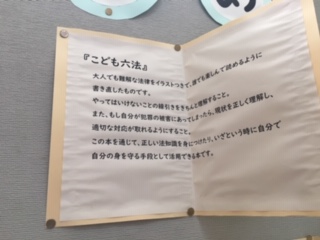 『こども六法』
大人でも難解な法律をイラストつきで、誰でも楽しんで読めるように
書き直したものです。
やってはいけないことの線引きをきちんと理解すること。
また、もし自分が犯罪の被害にあってしまったら、現状を正しく理解し、
適切な対応が取れるようにすること。
この本を通じて、正しい法知識を身につけたり、いざという時に自分で
自分の身を守る手段として活用できる本です。